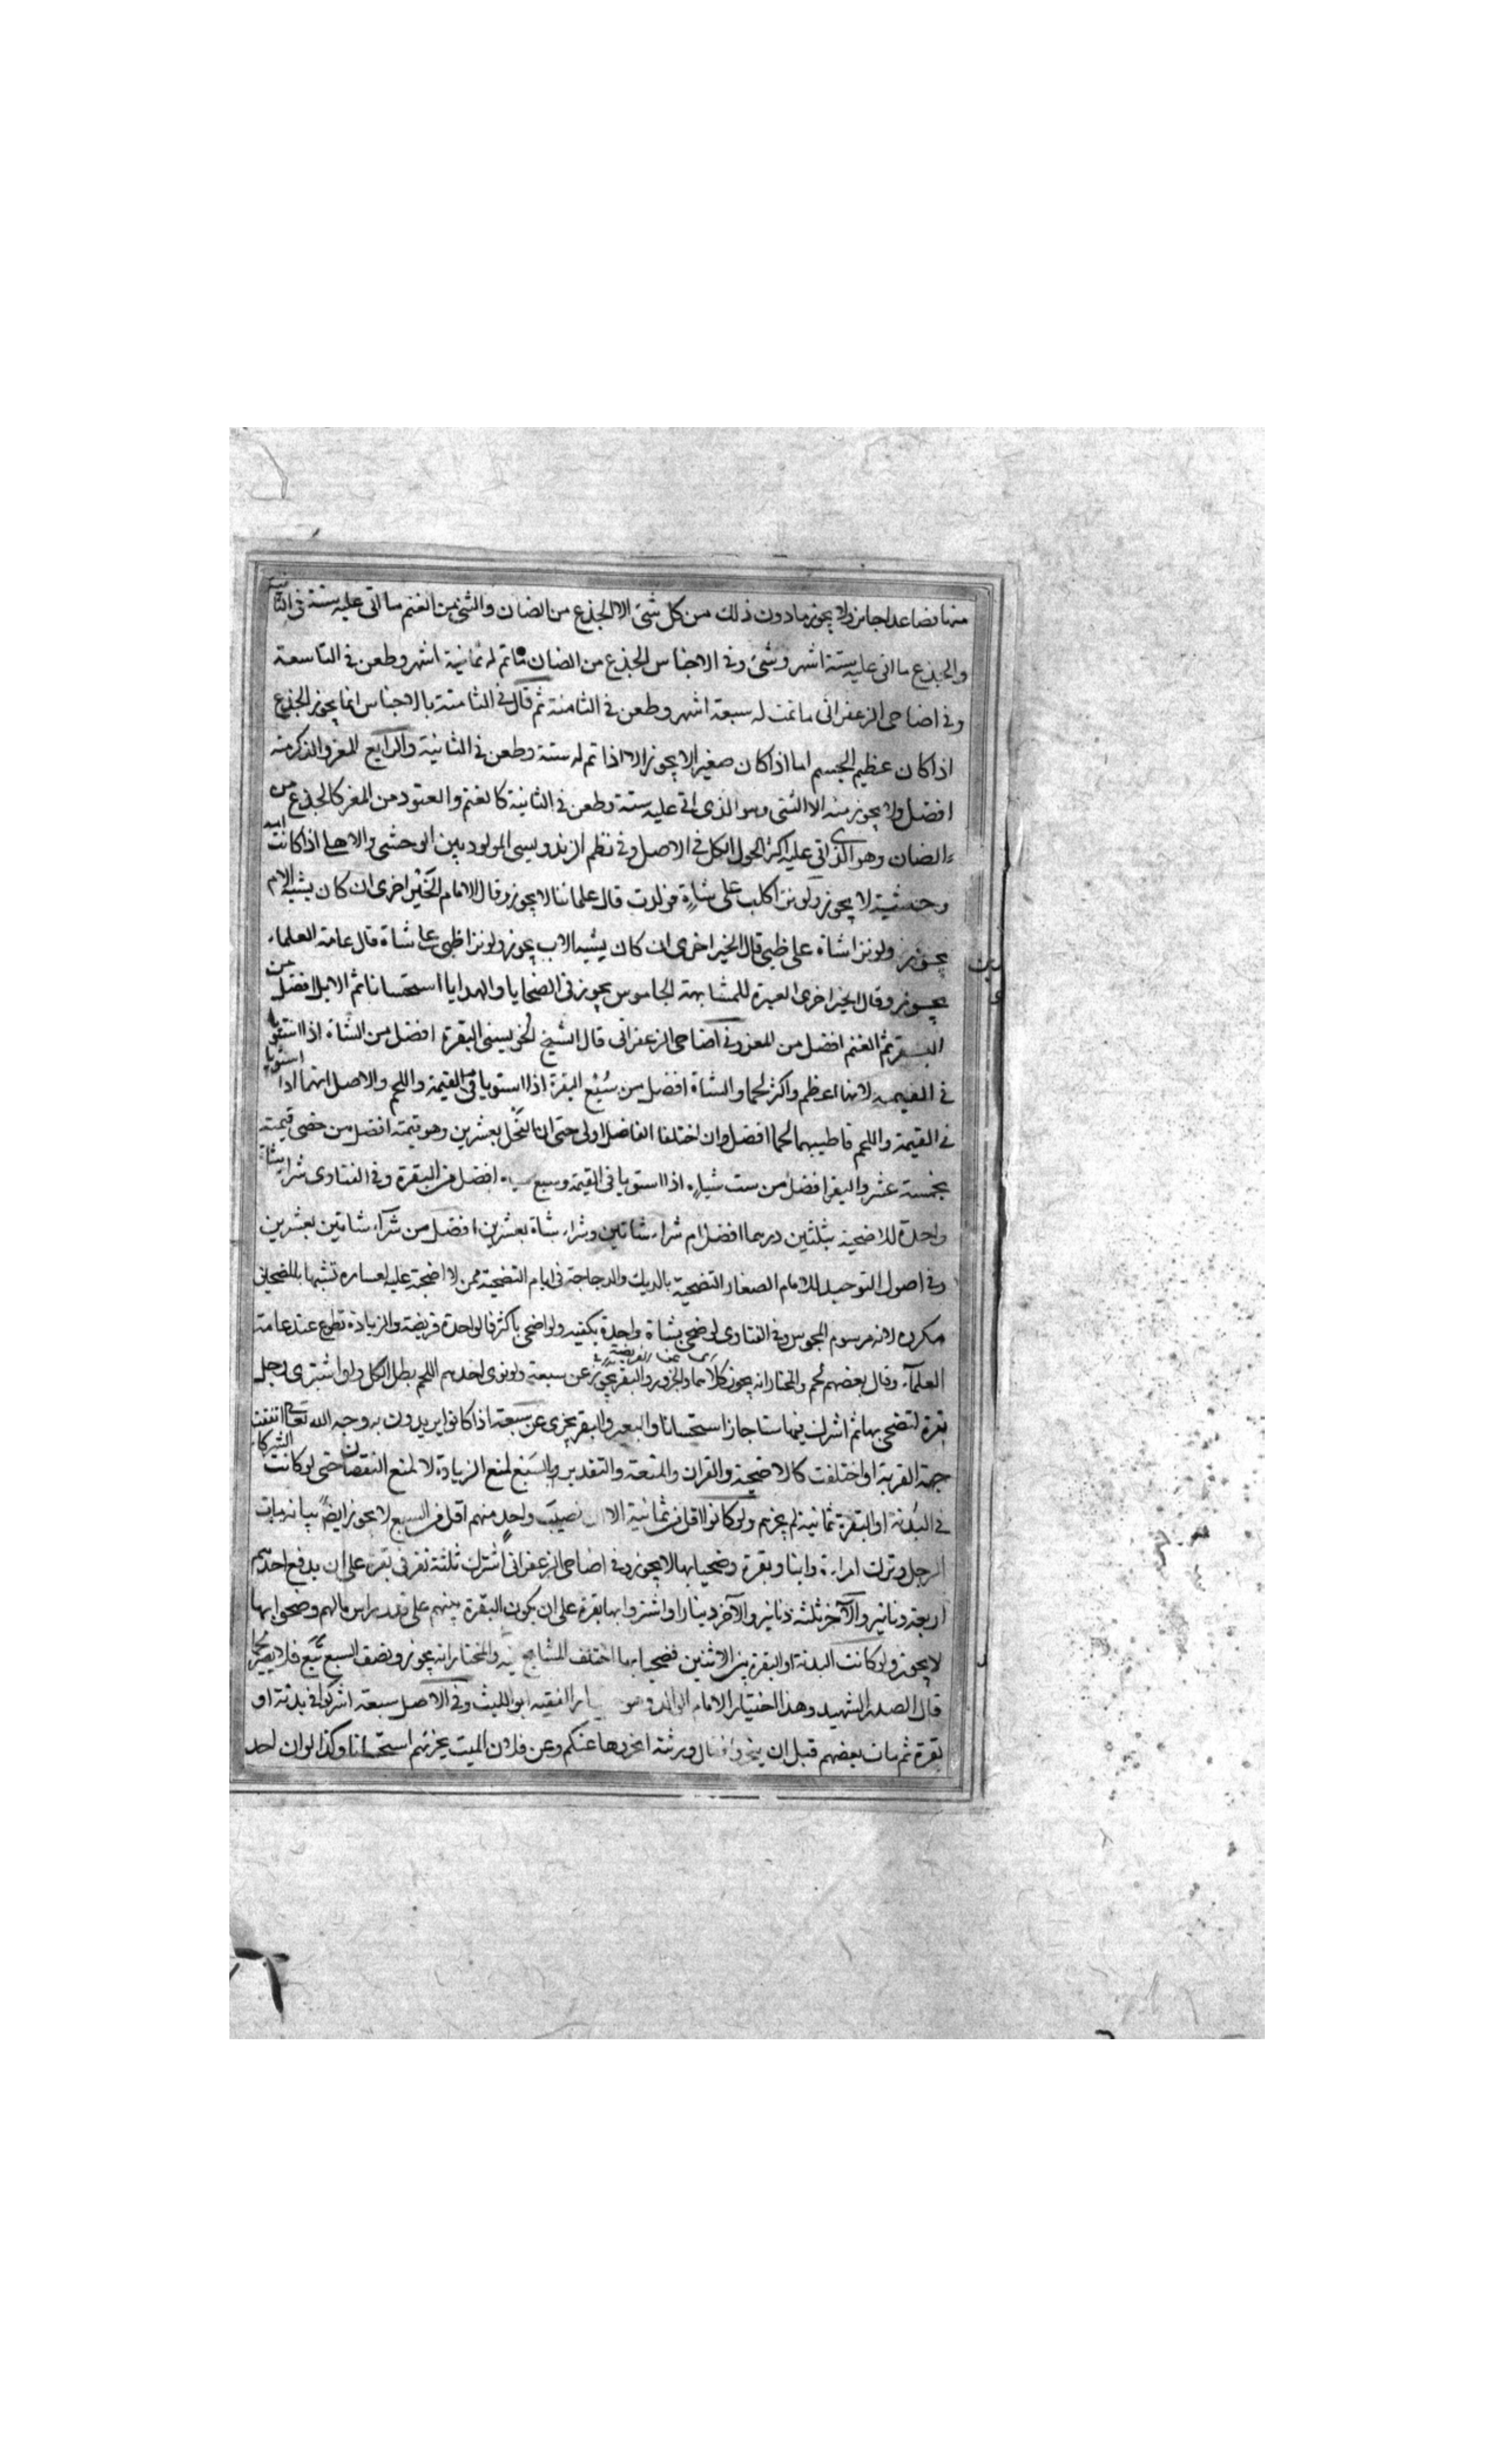 منها فصاعدا جايز ولا يجوز ما دون ذلك من كل شئ الا الجذع من الضان والثنى من الغنم ما اتى عليه سنة فى الثانية
والجذع ما اتى عليه ستة اشهر وشئ وفى الاجناس الجذع من الضان ما تم له ثمانية اشهر وطعن فى التاسعة
وفى اضاحى الزعفرانى ما تمت له سبعة اشهر وطعن فى الثامنة ثم قال فى الثامنة بالاجناس انما يجوز الجذع
اذا كان عظيم الجسم اما اذا كان صغيرا لا يجوز الا اذا تم له سنة وطعن فى الثانية والرابع المعز والذكر منه
افضل ولا يجوز منه الا الثنى وهو الذى اتى عليه سنة وطعن فى الثانية كالغنم والعتود من المعز كالجذع من
الضان وهو الذى اتى عليه اكثر الحول الكل فى الاصل وفى نظم الزندويسى المولود بين الوحشى والاهلى اذا كانت امه
وحشية لا يجوز ولو نزا كلب على شاة فولدت قال علماننا لا يجوز وقال الامام الخير اخرى ان كان يشبه الام
يجوز ولو نزا شاة على ظبى قال الخير اخرى ان كان يشبه الاب يجوز ولو نزا ظبى على شاة قال عامة العلماء
يجوز وقال الخير اخرى العبرة للمشابهة الجاموس يجوز فى الضحايا والهدايا استحسانا ثم الابل افضل من
البقر ثم الغنم افضل من المعز وفى اضاحى الزعفرانى قال الشيخ البقرة افضل من الشاة اذا استويا
فى القيمة لانها اعظم واكثر لحما والشاة افضل من سُبُع البقرة اذا استويا فى القيمة واللحم والاصل انهما اذا استويا
فى القيمة واللحم فاطيبهما لحما افضل وان اختلفا الفاضل اولى حتى ان الفحل بعشرين وهو قيمته افضل من خصى قيمته
بخمسة عشر والبقر افضل من ست شياه اذا استويا فى القيمة وسبع شياه افضل من البقرة وفى الفتاوى شراء شاة
واحدة للاضحية بثلثين درهما افضل ام شراء شاتين وشراء شاة بعشرين افضل من شراء شاتين بعشرين
وفى اصول التوحيد للامام الصفار التضحية بالديك والدجاجة فى ايام التضحية ممن لا اضحية عليه لعساره تشبها بالمضحين
مكروه لانه من رسوم المجوس وفى الفتاوى لو ضحى بشاة واحدة يكفيه ولو اضحى باكثر فالواحدة فريضة والزيادة تطوع عند عامة
العلماء وقال بعضهم لحم والمختار انه يجوز كلاهما والجزور والبقر يجوز عن سبعة ولو نوى احدهم اللحم بطل الكل ولو اشترى رجل
بقرة لتضحى بها ثم اشرك فيها ستا جاز استحسانا والبعير والبقر يجزى عن سبعة اذا كانوا يريدون به وجه الله تعالى اتفقت
جهة القربة او اختلفت كالاضحية والقران والمتعة والتقدير بالسُبُع لمنع الزيادة لا لمنع النقصان حتى لو كانت الشركاء
فى البدنة او البقرة ثمانية لم يجزهم ولو كانوا اقل من ثمانية الا ان نصيب واحد منهم اقل من السبع لا يجوز ايضا بيانه مات
الرجل وترك امراءة وابنا وبقرة وضحيا بها لا يجوز وفى اضاحى الزعفرانى اشترك ثلثة نفر فى بقرة على ان يدفع احدهم
اربعة دنانير والآخر ثلثة دنانير والآخر دينارا واشتروا بها بقرة على ان يكون البقرة بينهم على قدر راس مالهم وضحوا بها
لا يجوز ولو كانت البدنة او البقرة بين الاثنين فضحيا بها اختلف المشايخ فيه والمختار انه يجوز ونصف السبع تبع فلا يصير لحما
قال الصدر الشهيد وهذا اختيار الامام الوالد وهو اختيار الفقيه ابو الليث وفى الاصل سبعة اشركوا فى بدنة او
بقرة ثم مات بعضهم قبل ان ينحر وقال ورثته انحرها عنكم وعن فلان الميت يجزئهم استحسانا وكذا لو ان احد